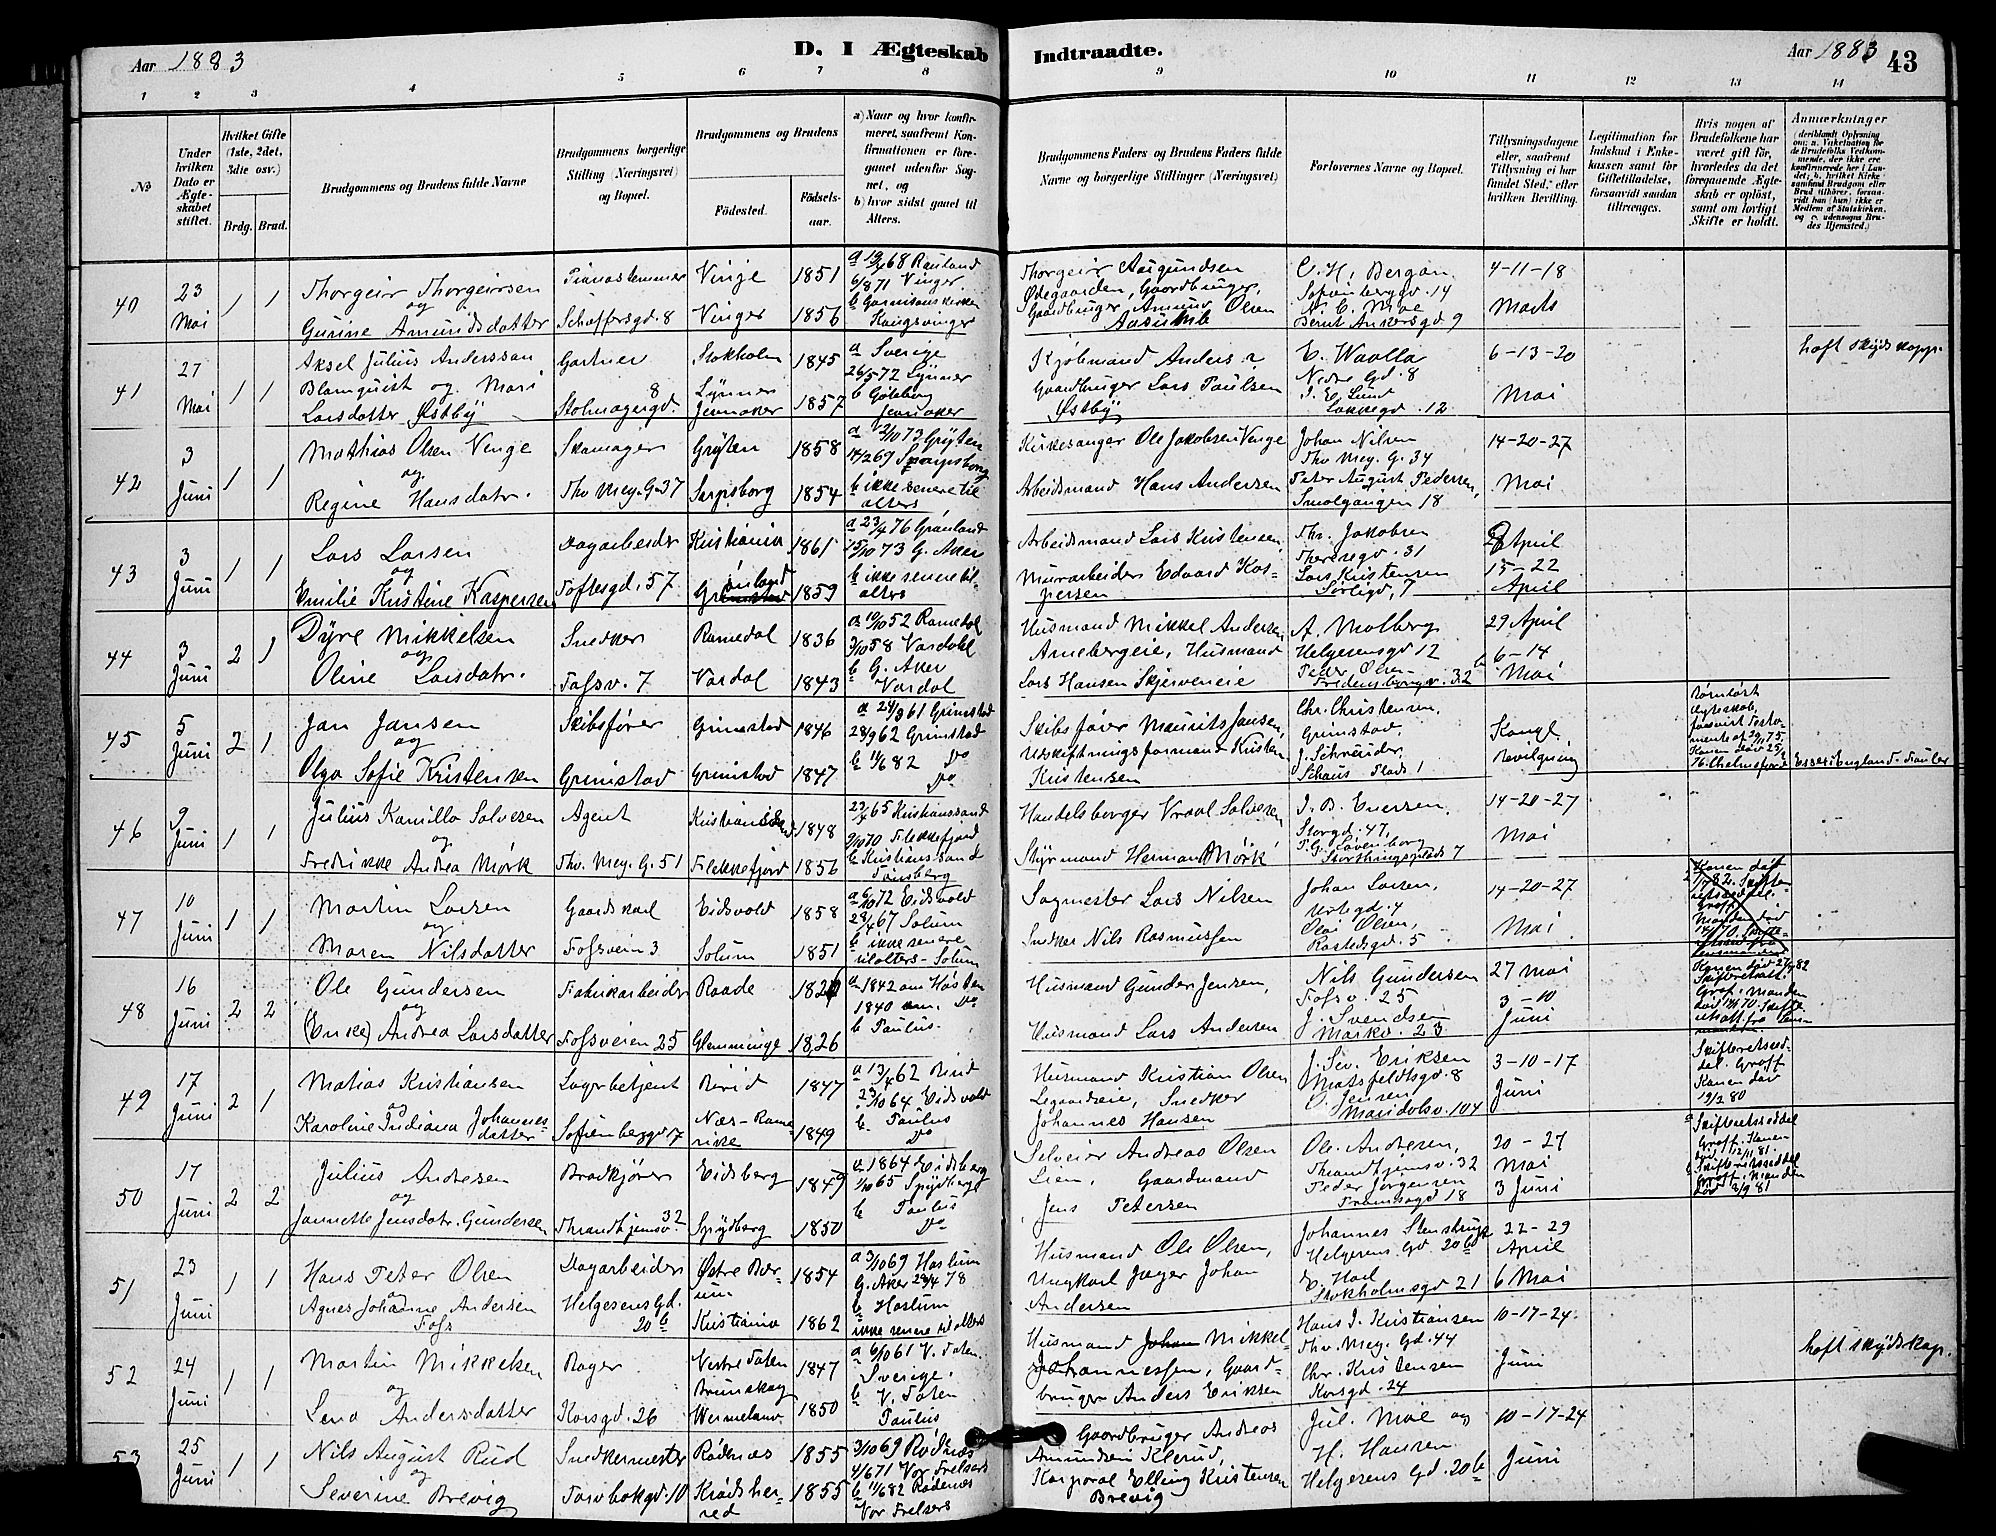 Aar 1883
D. I Ægteskab
Indtraadte.
Aar 1883
43
1 2 3 4 5 6 7 8 9 10 11 12 13 14
No
Under hvilken Dato er Ægteskabet stiftet.
Hvilket Gifte (1ste, 2det, 3die osv.)
Brdg. Brud.
Brudgommens og Brudens fulde Navne
Brudgommens borgerlige Stilling (Næringsvei) og Bopæl.
Brudgommens og Brudens
Fødested.
Fødselsaar.
a) Naar og hvor konfirmeret, saafremt Konfirmationen er foregaaet udenfor Sognet, og
b) hvor sidst gaaet til Alters.
Brudgommens Faders og Brudens Faders fulde Navne og borgerlige Stillinger (Næringsvei)
Forlovernes Navne og Bopæl.
Tillysningsdagene eller, saafremt Tillysning ei har fundet Sted, efter hvilken Bevilling.
Legitimation for Indskud i Enkekassen samt for Giftetilladelse, forsaavidt saadan tiltrænges.
Hvis nogen af Brudefolkene har været gift før, hvorledes da det foregaaende Ægteskab er opløst, samt om lovligt Skifte er holdt.
Anmærkninger
40
23 Mai
1 1
Thorgeir Thorgeirsen
og
Gurine Amundsdatter
Pianostemmer
Schaffersgd. 8
Vinje 1851
Vinger 1856
Rauland
6/8 71 Vinger
b Garnisonskirken
Kongsvinger
Thorgeir Aasgundsen
Ødegaarden, Gaardbruger,
Gaardbruger Amund Olsen
C. H. Bergan
Sofienberggd. 14
N. C. Moe
Bernt Ankersgd 9
4-11-18
Marts
41
27 Mai
1 1
Aksel Julius Andersson
Blomquist og Mari
Larsdatter Østby
Gartner
8
Stolmagergd.
Stokholm 1845
Lynner
Jevnaker 1857
a Sverige
26/5 72 Lynner
b Göteborg
Jevnaker
Kjøbmand Anders ?
Gaardbruger Lars Paulsen
Østby
E. Waalla
Nedre Gd. 8
J. E. Lund
Lakkegd. 12
6-13-20
Mai
haft skyds kopp.
42
3 Juni
1 1
Mathias Olsen Venge
og
Regine Hansdatr.
Skomager
Thv. Mey. G. 37
Grytten 1858
Sarpsborg 1854
a 12/10 73 Grytten
14/2 69 Sarpsborg
b ikke senere til
alters
Kirkesanger Ole Jakobsen Venge
Arbeidsmand Hans Andersen
Johan Nilsen
Thv. Mey. G. 34
Peter August Pedersen,
Smalgangen 18
14-20-27
Mai
43
3 Juni
1 1
Lars Larsen
og
Emilie Kristine Kaspersen
Dagarbeider
Toftesgd. 57
Kristiania 1861
Grønland 1859
a 23/4 76 Grønland
15/10 73 G. Aker
b ikke senere til
alters
Arbeidsmand Lars Kristensen,
Murarbeider Edvard Kaspersen
Thr. Jakobsen
Theresgd. 31
Lars Kristensen
Sørligd. 7
8 April
15-22
April
44
3 Juni
2 1
Dyre Mikkelsen
og
Oline Larsdatr.
Snedker
Fossv. 7
Romedal 1836
Vardal 1843
a 10/10 52 Romedal
3/10 58 Vardahl
b G. Aker
Vardal
Husmand Mikkel Andersen
Arnebergeie, Husmand
Lars Hansen Skjerveneie
A. Molberg
Helgesensgd 12
Peder Olsen
Fredensborgv. 32 b
29 April
6-14
Mai
45
5 Juni
2 1
Jan Jansen
og
Olga Sofie Kristensen
Skibsfører
Grimstad
Grimstad 1846
Grimstad 1847
a 24/9 61 Grimstad
28/9 62 Grimstad
b 11/6 82 Do
Do
Skibsfører Maurits Jansen,
Udskiftningsformand Kristen
Kristensen
Chr. Christensen,
Grimstad,
J. Schrøder
Schous Plads 1
Kongl.
Bevilgning
Essex England
46
9 Juni
1 1
Julius Kamillo Salvesen
og
Fredrikke Andrea Mørk
Agent
Thv. Mey. G. 51
Kristianssand 1848
Flekkefjord 1856
23/4 65 Kristianssand
9/10 70 Flekkefjord
b Kristianssand
Tønsberg
Handelsborger Vraal Salvesen,
Styrmand Herman Mørk
J. B. Enersen,
Storgd. 47,
P. G. Løvenborg
Storthingsplads 7
14-20-27
Mai
47
10 Juni
1 1
Martin Larsen
og
Maren Nilsdatter
Gaardskarl
Fossveien 3
Eidsvold 1858
Solum 1851
a 6/10 72 Eidsvold
28/4 67 Solum
b ikke senere
til alters - Solum
Sagmester Lars Nilsen
Snedker Nils Rasmussen
Johan Larsen,
Urtegd. 4
Olai Olsen,
Rostedsgd. 5
14-20-27
Mai
48
16 Juni
2 2
Ole Gundersen
og
(Enke) Andrea Larsdatter
Fabrikarbeider
Fossveien 25
Raade
Glemminge 1826
a 1842 om Høsten
1840 om. Do
b Paulus.
Husmand Gunder Jensen,
Husmand Lars Andersen
Nils Gundersen
Fossv. 25
J. Svendsen
Markv. 23
27 Mai
3-10
Juni
Konen død 27/9 82
49
17 Juni
2 1
Matias Kristiansen
og
Karoline Indiana Johannesdatter
Lagerbetjent
Sofienberggd 7
Birid 1847
Næs-Romerike 1849
a 13/4 62 Birid
23/10 64 Eidsvold
b. Paulus
Do
Husmand Kristian Olsen
Snedker
Johannes Hansen
J. Sev. Eriksen
Motzfeldtsgd. 8
O. Jensen
Maridalsv. 104
3-10-17
Juni
Skifteretsseddel. Groff
Konen død
19/2 80
50
17 Juni
2 2
Julius Andresen
og
Jannette Jensdatr. Gundersen
Brødkjører
Throndhjemsv. 32
Eidsberg 1849
Spydberg 1850
a 1864 Eidsberg
1/10 65 Spydberg
b Paulus
Do
Selveier Andreas Olsen
Lien, Gaardmand
Jens Petersen
Ole Andresen,
Throndhjemsv. 32
Peder Jørgensen
Framsgd 18
20-27
Mai
3 Juni
a Skifteretsseddel
Groff. Konen
død 12/11 81.
b Skifteretsseddel
Groff. Manden
død 3/9 81
51
23 Juni
1 1
Hans Peter Olsen
og
Agnes Johanne Andersen
Foss
Dagarbeider
Helgesens Gd.
20 b
Østre Bærum 1854
Kristiania 1862
a 3/10 69 Haslum
G. Aker 28/4 78
b Haslum
ikke senere til alters
Husmand Ole Olsen,
Ungkarl Jæger Johan
Andersen
Johannes Stenstrup
Helgesens Gd. 20 b
E. Hoel
Stokholmsgd 21
22-29
April
6 Mai
52
24 Juni
1 1
Martin Mikkelsen
og
Lena Andersdatter
Bager
Korsgd. 26
Vestre Toten 1847
Brunskog
Wermeland 1850
a 6/10 61 V. Toten.
Sverige.
b V. Toten
Paulus
Husmand Mikkel
Johannessen, Gaardbruger Anders Eriksen
Hans J. Kristiansen
Thv. Mey. Gd. 44
Chr. Kristensen
Korsgd. 24
10-17-24.
Juni
haft skydskop.
53
25 Juni
1 1
Nils August Rud
og
Severine Brevig
Snedkermester
Torvbakgd. 10
Rødenæs 1855
Krødsherred 1855
3/10 69 Rødenæs
4/6 71 Vor Frelsers
b 11/6 82 Rødenæs
Vor Frelsers
Gaardbruger Andreas
Amundsen Klerud,
Korporal Elling Kristensen
Brevig
Jul. Moe og
H. Hansen
Helgesens Gd. 20 b
10-17-24
Juni